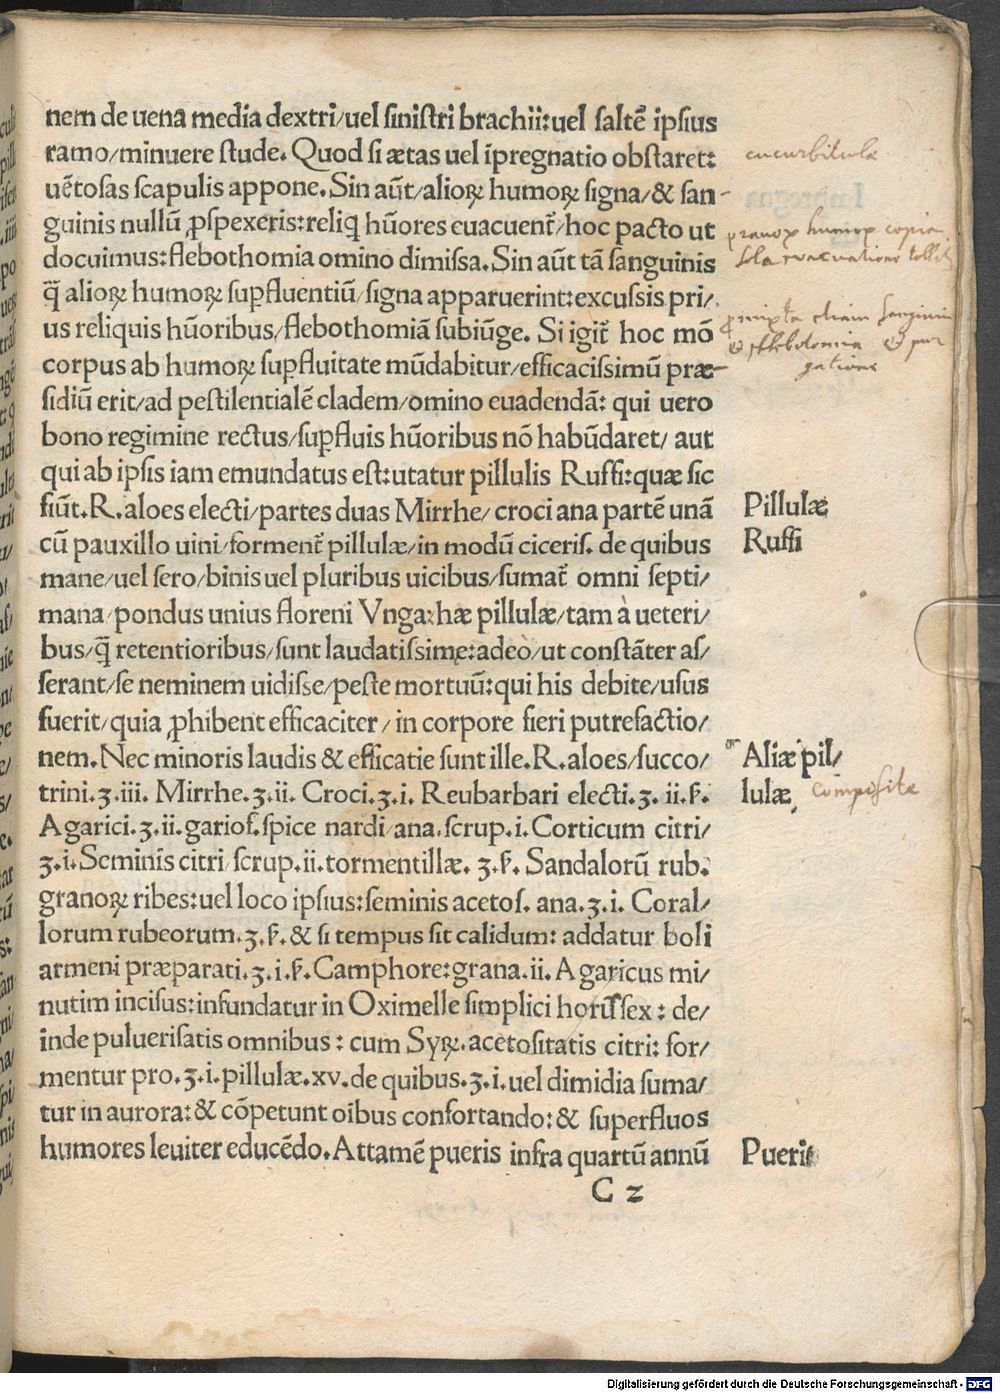 nem de uena media dextri/uel sinistri brachii:uel saltē ipsius
ramo/minuere stude. Quod si ætas uel īpregnatio obstaret:
uētosas scapulis appone. Sin aūt/alioꝝ humoꝝ signa/& san-
guinis nullū ꝓspexeris:reliq̄ hūores euacuent̄/hoc pacto ut
docuimus:flebothomia omino dimissa. Sin aūt tā sanguinis
q̄ alioꝝ humoꝝ suꝑfluentiū/signa apparuerint:excussis pri/
us reliquis hūoribus/flebothomiā subiūge. Si igit̄ hoc mō
corpus ab humoꝝ suꝑfluitate mūdabitur/efficacissimū præ-
sidiū erit/ad pestilentialē cladem/omino euadendā: qui uero
bono regimine rectus/suꝑfluis hūoribus nō habūdaret/ aut
qui ab ipsis iam emundatus est:utatur pillulis Ruffi:quæ sic
fiūt. R. aloes electi/partes duas Mirrhe/ croci ana partē unā
cū pauxillo uini/forment̄ pillulæ/in modū ciceris. de quibus
mane/uel sero/binis uel pluribus uicibus/sumat̄ omni septi/
mana/pondus unius floreni Vnga: hæ pillulæ/tam à ueteri/
bus/q̄ retentioribus/sunt laudatissimę:adeò/ut constāter as/
serant/se neminem uidisse/peste mortuū:qui his debite/usus
fuerit/quia ꝓhibent efficaciter/in corpore fieri putrefactio/
nem. Nec minoris laudis & efficatie sunt ille. R. aloes/succo/
trini.ʒ.iii. Mirrhe.ʒ.ii. Croci.ʒ.i. Reubarbari electi.ʒ. ii.ſ.
Agarici.ʒ.ii.gariof.spice nardi/ana.scrup.i. Corticum citri/
ʒ.i. Seminis citri/scrup.ii.tormentillæ. ʒ.ſ. Sandalorū rub.
granoꝝ ribes:uel loco ipsius:seminis acetos. ana.ʒ.i. Coral/
lorum rubeorum.ʒ.ſ.& si tempus sit calidum: addatur boli
armeni præparati.ʒ.i.ſ. Camphore:grana.ii. Agaricus mi/
nutim incisus:infundatur in Oximelle simplici horis sex: de/
inde puluerisatis omnibus: cum Syꝝ. acetositatis citri: for/
mentur pro.ʒ.i.pillulæ.xv.de quibus.ʒ.i.uel dimidia suma/
tur in aurora:& cōpetunt oībus confortando:& superfluos
humores leuiter educēdo. Attamē pueris infra quartū annū
C 2
cucurbitula
humoꝝ copia
sola evacuatione
mixta etiam sanguini
& phlebotomia & pur
gatione
Pillulæ
Ruffi
Aliæ pil/
lulæ composite
Pueris
Digitalisierung gefördert durch die Deutsche Forschungsgemeinschaft - DFG